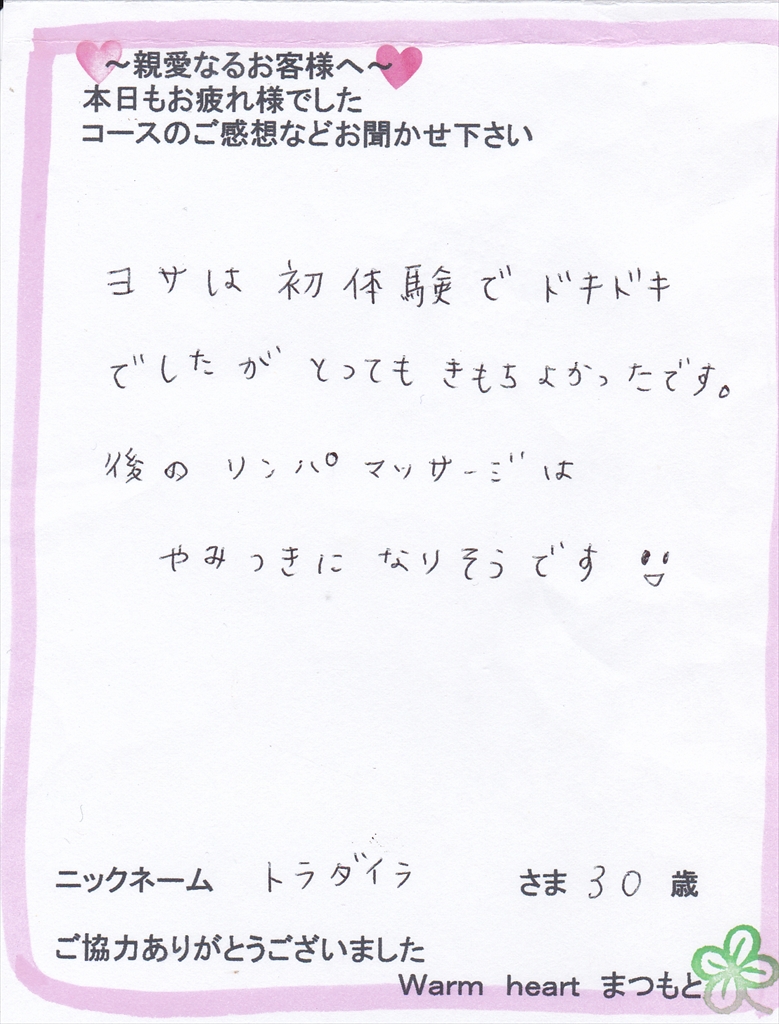 ～親愛なるお客様へ～
本日もお疲れ様でした
コースのご感想などお聞かせ下さい
ヨサは初体験でドキドキ
でしたがとってもきもちよかったです。
後のリンパマッサージは
やみつきになりそうです
ニックネーム トラダイラ さま 30 歳
ご協力ありがとうございました
Warm heart まつもと